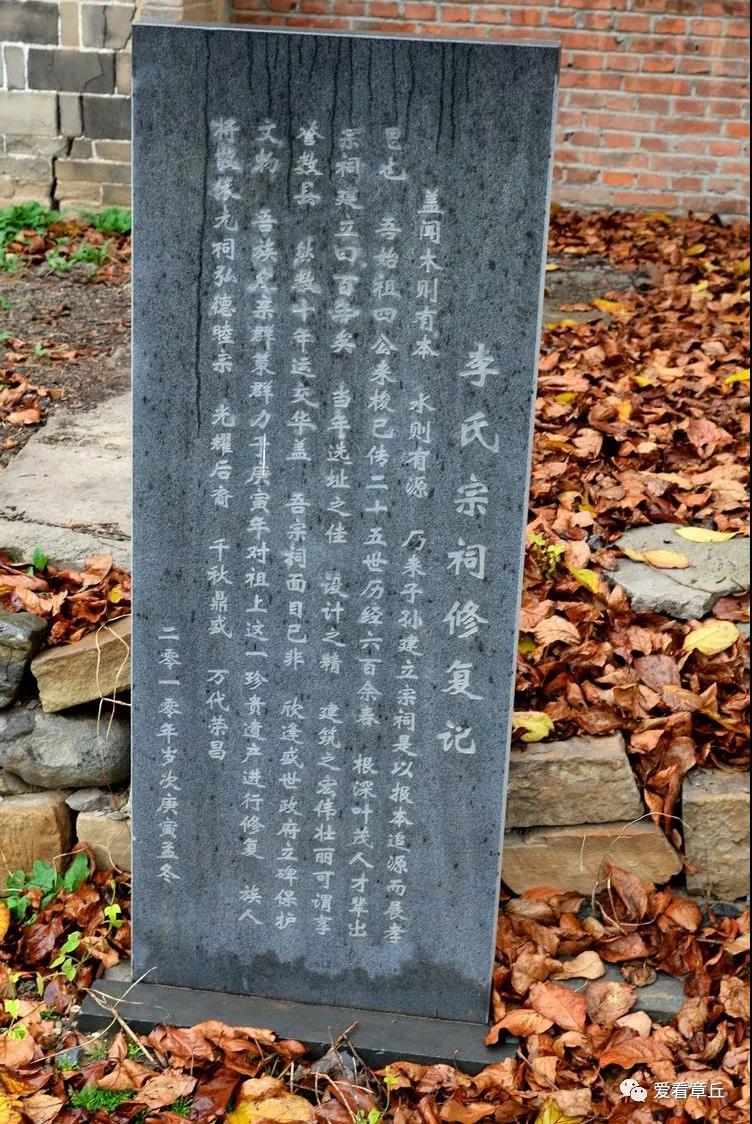 李氏宗祠修复记
盖闻木则有本 水则有源 乃来子孙建立宗祠是以根本追源而展孝
思也 吾始祖四公来梭已传二十五世历经六百余春 根深叶茂人才辈出
宗祠建立曰百年矣 当年选址之佳 设计之精 建筑之宏伟壮丽可谓李
誉数县 然数十年运交华盖 吾宗祠面目已非 欣逢盛世政府立碑保护
文物 吾族人亲群策群力于庚寅年对祖上这一珍贵遗产进行修复 族人
将敬缘元祠弘德睦宗 光耀后裔 千秋鼎盛 万代荣昌
二零一零年岁次庚寅孟冬
爱看章丘